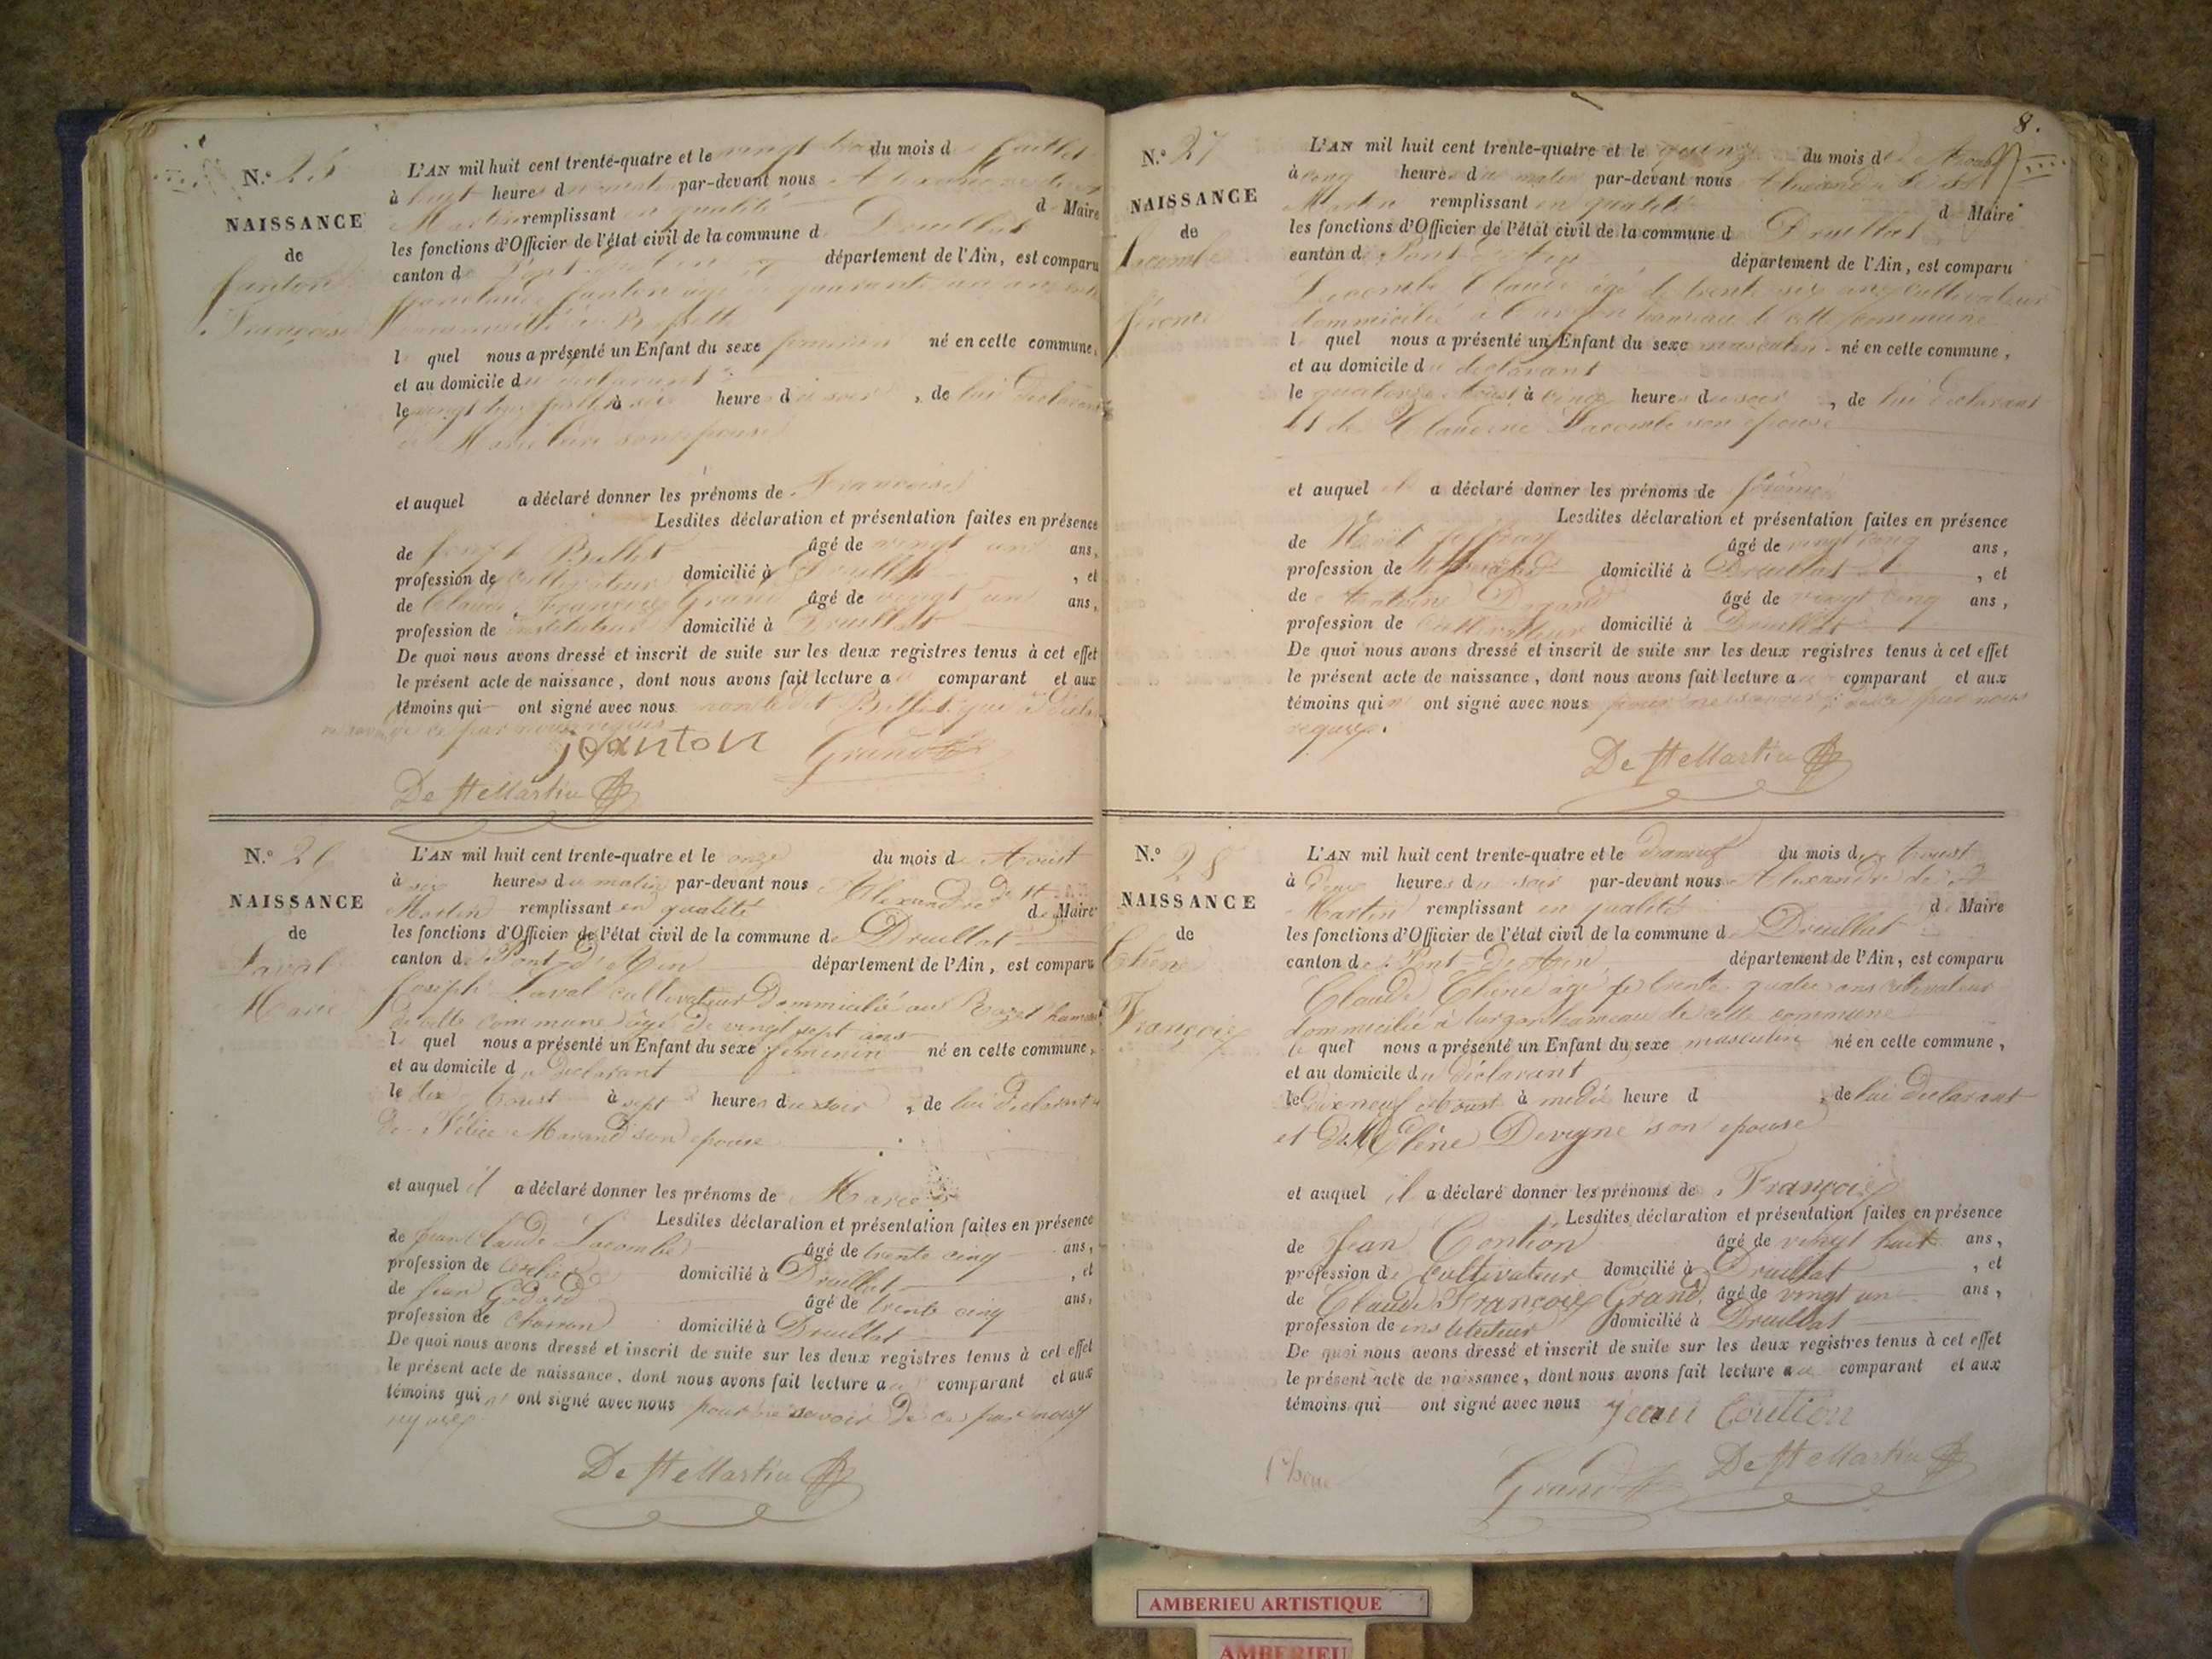 N.° 25
NAISSANCE
de
Janton
Françoise
L'AN mil huit cent trente-quatre et le vingt trois du mois de Juillet
à huit heures du matin par-devant nous Alexandre de St
Martin remplissant en qualité de Maire
les fonctions d'Officier de l'état civil de la commune de Druillat
canton de Pont d'ain département de l'Ain, est comparu
Janton âgé de quarante un ans
l quel nous a présenté un Enfant du sexe féminin né en cette commune,
et au domicile du déclarant
le vingt trois juillet à six heure du soir, de lui déclarant
son épouse
et auquel a déclaré donner les prénoms de Françoise
Lesdites déclaration et présentation faites en présence
de Joseph Bellet âgé de vingt un ans,
profession de cultivateur domicilié à Druillat, et
de Claude François Grand âgé de vingt un ans,
profession de instituteur domicilié à Druillat
De quoi nous avons dressé et inscrit de suite sur les deux registres tenus à cet effet
le présent acte de naissance, dont nous avons fait lecture au comparant et aux
témoins qui ont signé avec nous non ledit Bellet qui a
de ce par nous requis
janton Grand
De St Martin
N.° 26
NAISSANCE
de
Laval
Marie
L'AN mil huit cent trente-quatre et le onze du mois de Aoust
à six heures du matin par-devant nous Alexandre de St
Martin remplissant en qualité de Maire
les fonctions d'Officier de l'état civil de la commune de Druillat
canton de Pont d'Ain département de l'Ain, est comparu
Joseph Laval cultivateur Dommicilié au hameau
de cette commune âgé de vingt sept ans
l quel nous a présenté un Enfant du sexe féminin né en cette commune,
et au domicile du Déclarant
le dix Aoust à sept heures du soir, de lui déclarant
de Félice Marand son épouse
et auquel il a déclaré donner les prénoms de Marie
Lesdites déclaration et présentation faites en présence
de Jean Claude Lacombe âgé de trente cinq ans,
profession de domicilié à Druillat, et
de Jean Godard âgé de trente cinq ans,
profession de Charron domicilié à Druillat
De quoi nous avons dressé et inscrit de suite sur les deux registres tenus à cet effet
le présent acte de naissance, dont nous avons fait lecture au comparant et aux
témoins qui n'ont signé avec nous pour ne savoir de ce par nous
requis
De St Martin
8.
N.° 27
NAISSANCE
de
Lacombe
Jérome
L'AN mil huit cent trente-quatre et le quinze du mois de Aoust
à cinq heures du matin par-devant nous Alexandre de St
Martin remplissant en qualité de Maire
les fonctions d'Officier de l'état civil de la commune de Druillat
canton de Pont d'Ain département de l'Ain, est comparu
Lacombe Claude âgé de trente six ans cultivateur
dommicilié à Turgon hameau de cette commune
l quel nous a présenté un Enfant du sexe masculin né en cette commune,
et au domicile du déclarant
le quatorze Aoust à cinq heures du soir, de lui déclarant
et de Claudine Lacombe son épouse
et auquel il a déclaré donner les prénoms de Jérome
Lesdites déclaration et présentation faites en présence
de âgé de vingt cinq ans,
profession de domicilié à Druillat, et
de Antoine âgé de vingt cinq ans,
profession de cultivateur domicilié à Druillat
De quoi nous avons dressé et inscrit de suite sur les deux registres tenus à cet effet
le présent acte de naissance, dont nous avons fait lecture au comparant et aux
témoins qui n'ont signé avec nous pour ne savoir de ce par nous
requis.
De St Martin
N.° 28
NAISSANCE
de
Chêne
François
L'AN mil huit cent trente-quatre et le dixneuf du mois de Aoust
à deux heures du soir par-devant nous Alexandre de St
Martin remplissant en qualité de Maire
les fonctions d'Officier de l'état civil de la commune de Druillat
canton de Pont d'Ain département de l'Ain, est comparu
Claude Chêne âgé de trente quatre ans cultivateur
dommicilié à turgon hameau de cette commune
le quel nous a présenté un Enfant du sexe masculin né en cette commune,
et au domicile du déclarant
le dix neuf Aoust à midi heure d, de lui déclarant
et de Devigne son épouse
et auquel il a déclaré donner les prénoms de François
Lesdites déclaration et présentation faites en présence
de Jean Contion âgé de vingt huit ans,
profession de cultivateur domicilié à Druillat, et
de Claude François Grand, âgé de vingt un ans,
profession de instituteur domicilié à Druillat
De quoi nous avons dressé et inscrit de suite sur les deux registres tenus à cet effet
le présent acte de naissance, dont nous avons fait lecture au comparant et aux
témoins qui ont signé avec nous jean
Grand De St Martin
AMBERIEU ARTISTIQUE
AMBERIEU